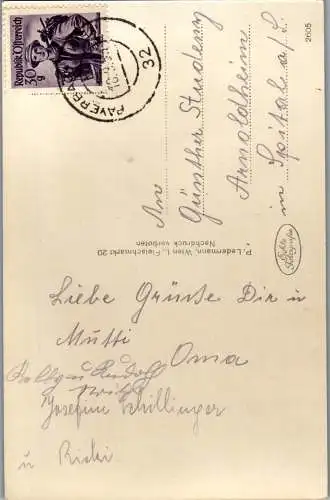 Republik Österreich
30 g
PAYERBACH
32
2605
An
Günther Studeny
Arnoldheim
in Spital a/S.
P. Ledermann, Wien I., Fleischmarkt 20
Nachdruck verboten
Echte Fotografie
Liebe Grüsse Dir u
Mutti
Oma
Rudolf
Josefine Schillinger
u Ricki